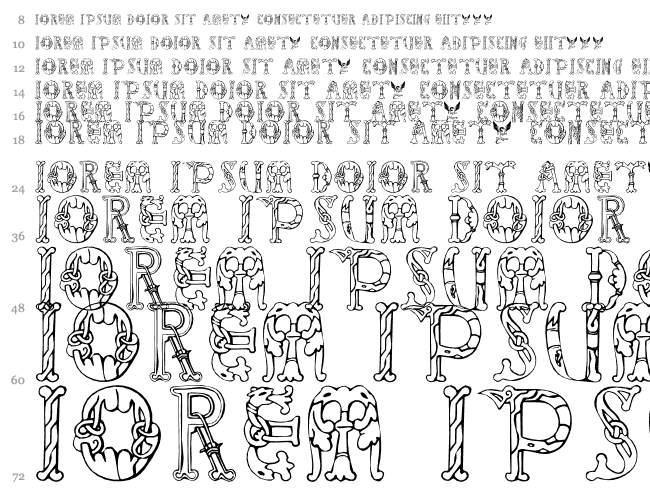 8 IOREM IPSUM DOIOR SIT AMET CONSECTETUER ADIPISCING EIIT
10 IOREM IPSUM DOIOR SIT AMET CONSECTETUER ADIPISCING EIIT
12 IOREM IPSUM DOIOR SIT AMET CONSECTETUER ADIPISCING EII
14 IOREM IPSUM DOIOR SIT AMET CONSECTETUER ADIPI
16 IOREM IPSUM DOIOR SIT AMET CONSECTETU
18 IOREM IPSUM DOIOR SIT AMET CONSECT
24 IOREM IPSUM DOIOR SIT AMET
36 IOREM IPSUM DOIOR
48 IOREM IPSUM DO
60 IOREM IPSUM
72 IOREM IPS